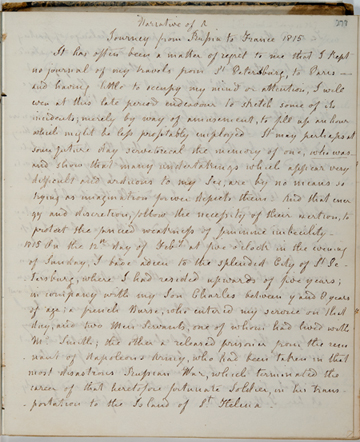 Narrative of a
378
Journey from Russia to France 1815
It has often been a matter of regret to me that I kept
no journal of my travels from St Petersburg, to Paris —
and having little to occupy my mind or attention, I will
even at this late period endeavour to sketch some of its
incidents; merely by way of amusement, to fill up an hour
which might be less profitably employed. It may perhaps at
some future day serve to recal the memory of one, who was
and show that many undertakings which appear very
difficult and arduous to my Sex, are by no means so
trying as imagination forever depicts them: And that ener-
gy and discretion, follow the necessity of their exertion, to
protect the fancied weakness of feminine imbecility.
1815 On the 12th day of Feby at five o'clock in the evening
of Sunday, I bade adieu to the splendid City of St Pe-
tersburg, where I had resided upwards of five years;
in company with my Son Charles between 7 and 8 years
of age: a french Nurse, who entered my service on that
day; and two Men Servants, one of whom had lived with
Mr. Smith; the other a released prisoner from the rem-
nant of Napoleons Army, who had been taken in that
most disastrous Russian War, which terminated the
career of that heretofore fortunate Soldier, in his trans-
portation to the Island of St Helena.